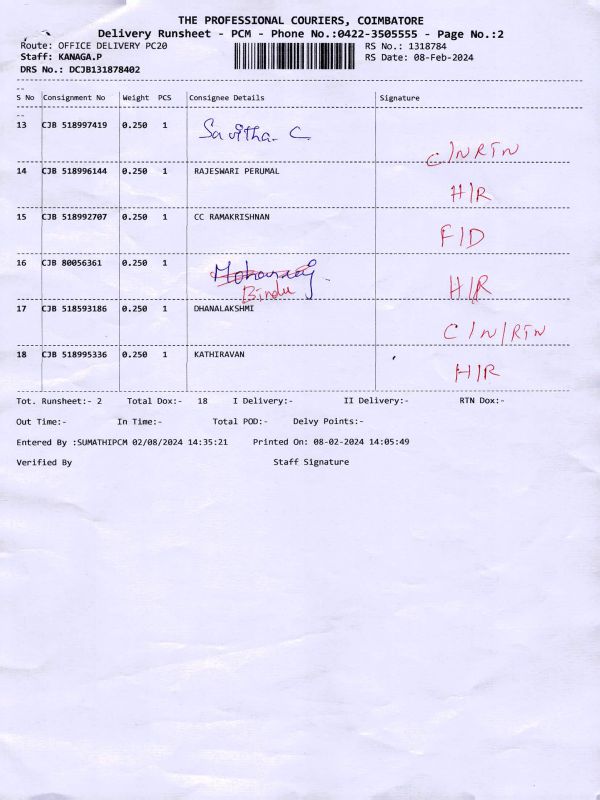 THE PROFESSIONAL COURIERS, COIMBATORE
Delivery Runsheet - PCM - Phone No.:0422-3505555 - Page No.:2
Route: OFFICE DELIVERY PC20 RS No.: 1318784
Staff: KANAGA.P RS Date: 08-Feb-2024
DRS No.: DCJB131878402
S No Consignment No Weight PCS Consignee Details Signature
13 CJB 518997419 0.250 1 Savitha. C C/NRTN
14 CJB 518996144 0.250 1 RAJESWARI PERUMAL H/R
15 CJB 518992707 0.250 1 CC RAMAKRISHNAN F/D
16 CJB 80056361 0.250 1 Mohanraj H/R
Bindu
17 CJB 518593186 0.250 1 DHANALAKSHMI C/N/RTN
18 CJB 518995336 0.250 1 KATHIRAVAN H/R
Tot. Runsheet:- 2 Total Dox:- 18 I Delivery:- II Delivery:- RTN Dox:-
Out Time:- In Time:- Total POD:- Delvy Points:-
Entered By :SUMATHIPCM 02/08/2024 14:35:21 Printed On: 08-02-2024 14:05:49
Verified By Staff Signature